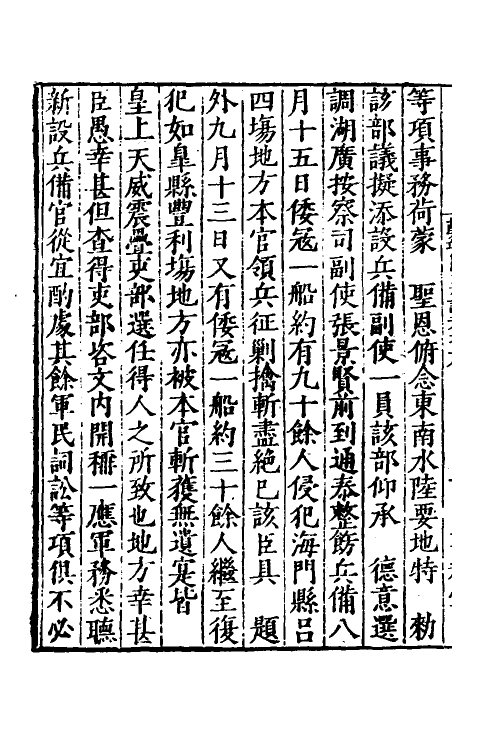 等項事務荷蒙　聖恩俯念東南水陸要地特　勑
該部議擬添設兵備副使一員該部仰承　德意選
調湖廣按察司副使張景賢前到通泰整飭兵備八
月十五日倭寇一船約有九十餘人侵犯海門縣呂
四塲地方本官領兵征剿擒斬盡絕已該臣具　題
外九月十三日又有倭寇一船約三十餘人繼至復
犯如臯縣豐利塲地方亦被本官斬獲無遺寔皆
皇上天威震疊吏部選任得人之所致也地方幸甚
臣愚幸甚但查得吏部咨文內開稱一應軍務悉聽
新設兵備官從宜酌處其餘軍民詞訟等項俱不必